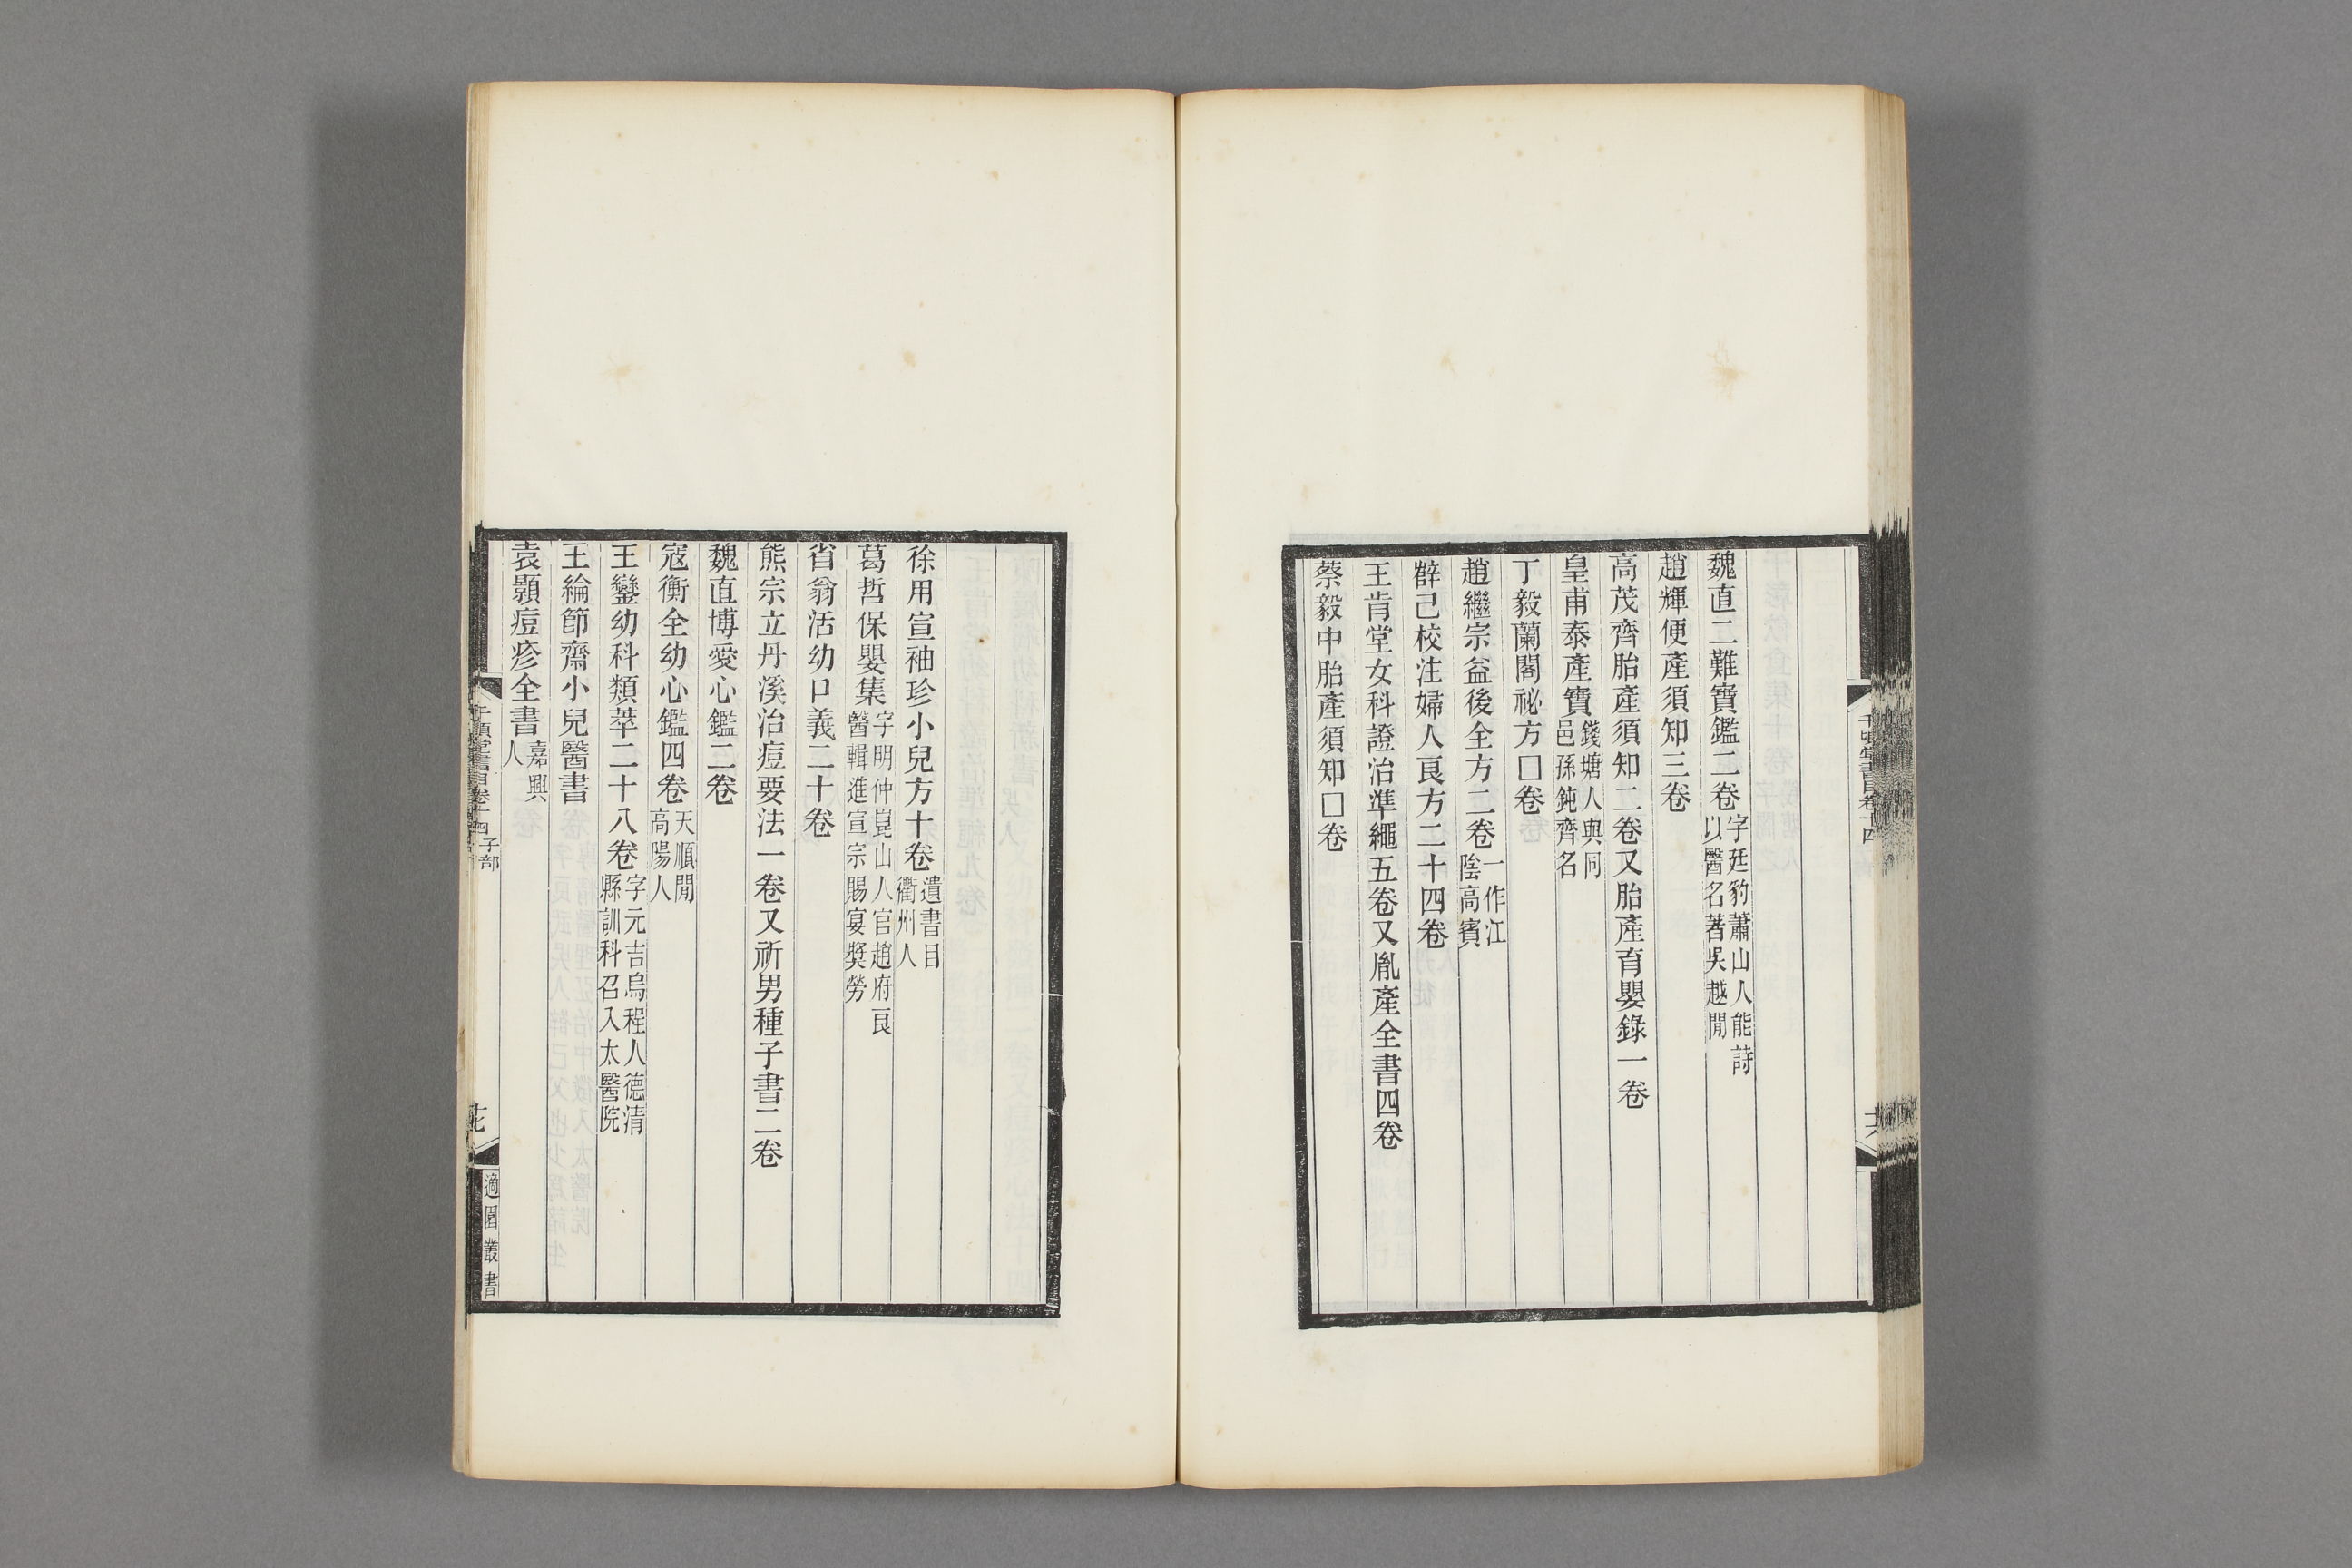 千頃堂書目卷十四
魏直二難寶鑑二卷字廷豹蕭山人能詩以醫名著吳越閒
趙輝便產須知三卷
高茂齊胎產須知二卷又胎產育嬰錄一卷
皇甫泰產寶錢塘人與同邑孫鈍齊名
丁毅蘭閣祕方□卷
趙繼宗益後全方二卷一作江陰高賓
薛己校注婦人良方二十四卷
王肯堂女科證治準繩五卷又胤產全書四卷
蔡毅中胎產須知□卷
徐用宣袖珍小兒方十卷遺書目衢州人
葛哲保嬰集字明仲崑山人官趙府良醫輯進宣宗賜宴獎勞
省翁活幼口義二十卷
熊宗立丹溪治痘要法一卷又祈男種子書二卷
魏直博愛心鑑二卷
寇衡全幼心鑑四卷天順閒高陽人
王鑾幼科類萃二十八卷字元吉烏程人德清縣訓科召入太醫院
王綸節齋小兒醫書
袁顥痘疹全書嘉興人
千頃堂書目卷十四 子部
適園叢書